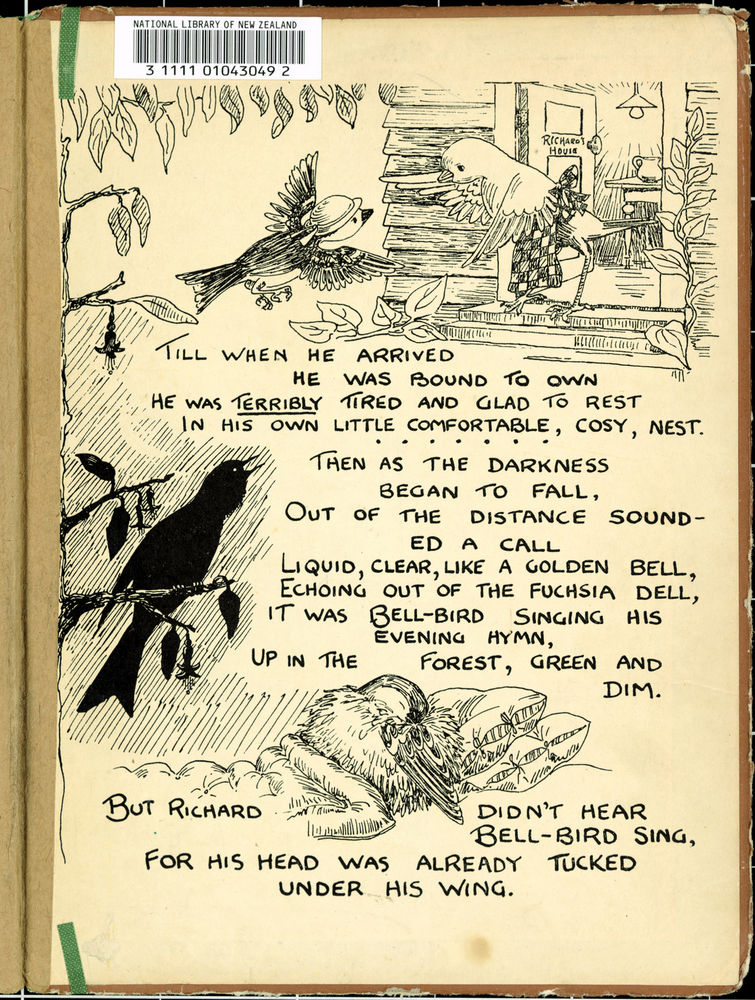 NATIONAL LIBRARY OF NEW ZEALAND
3 1111 01043049 2
RICHARD'S
HOUSE
TILL WHEN HE ARRIVED
HE WAS BOUND TO OWN
HE WAS TERRIBLY TIRED AND GLAD TO REST
IN HIS OWN LITTLE COMFORTABLE, COSY, NEST.
. . . . . . .
THEN AS THE DARKNESS
BEGAN TO FALL,
OUT OF THE DISTANCE SOUND-
ED A CALL
LIQUID, CLEAR, LIKE A GOLDEN BELL,
ECHOING OUT OF THE FUCHSIA DELL,
IT WAS BELL-BIRD SINGING HIS
EVENING HYMN,
UP IN THE FOREST, GREEN AND
DIM.
BUT RICHARD DIDN'T HEAR
BELL-BIRD SING,
FOR HIS HEAD WAS ALREADY TUCKED
UNDER HIS WING.